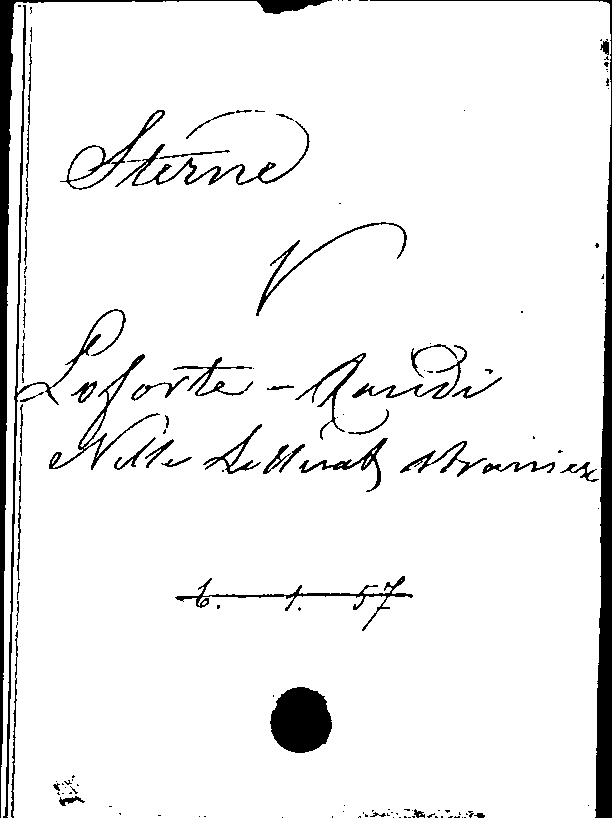 Sterne
V
Loforte - Randi
Nelle Letterat straniere
6. 1. 57